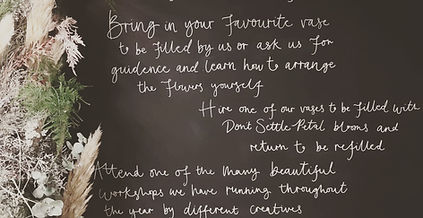 Bring in your favourite vase
to be filled by us or ask us for
guidence and learn how to arrange
the flowers yourself
Hire one of our vases to be filled with
Dont Settle Petal blooms and
return to be refilled
Attend one of the many beautiful
workshops we have running throughout
the year by different creatives